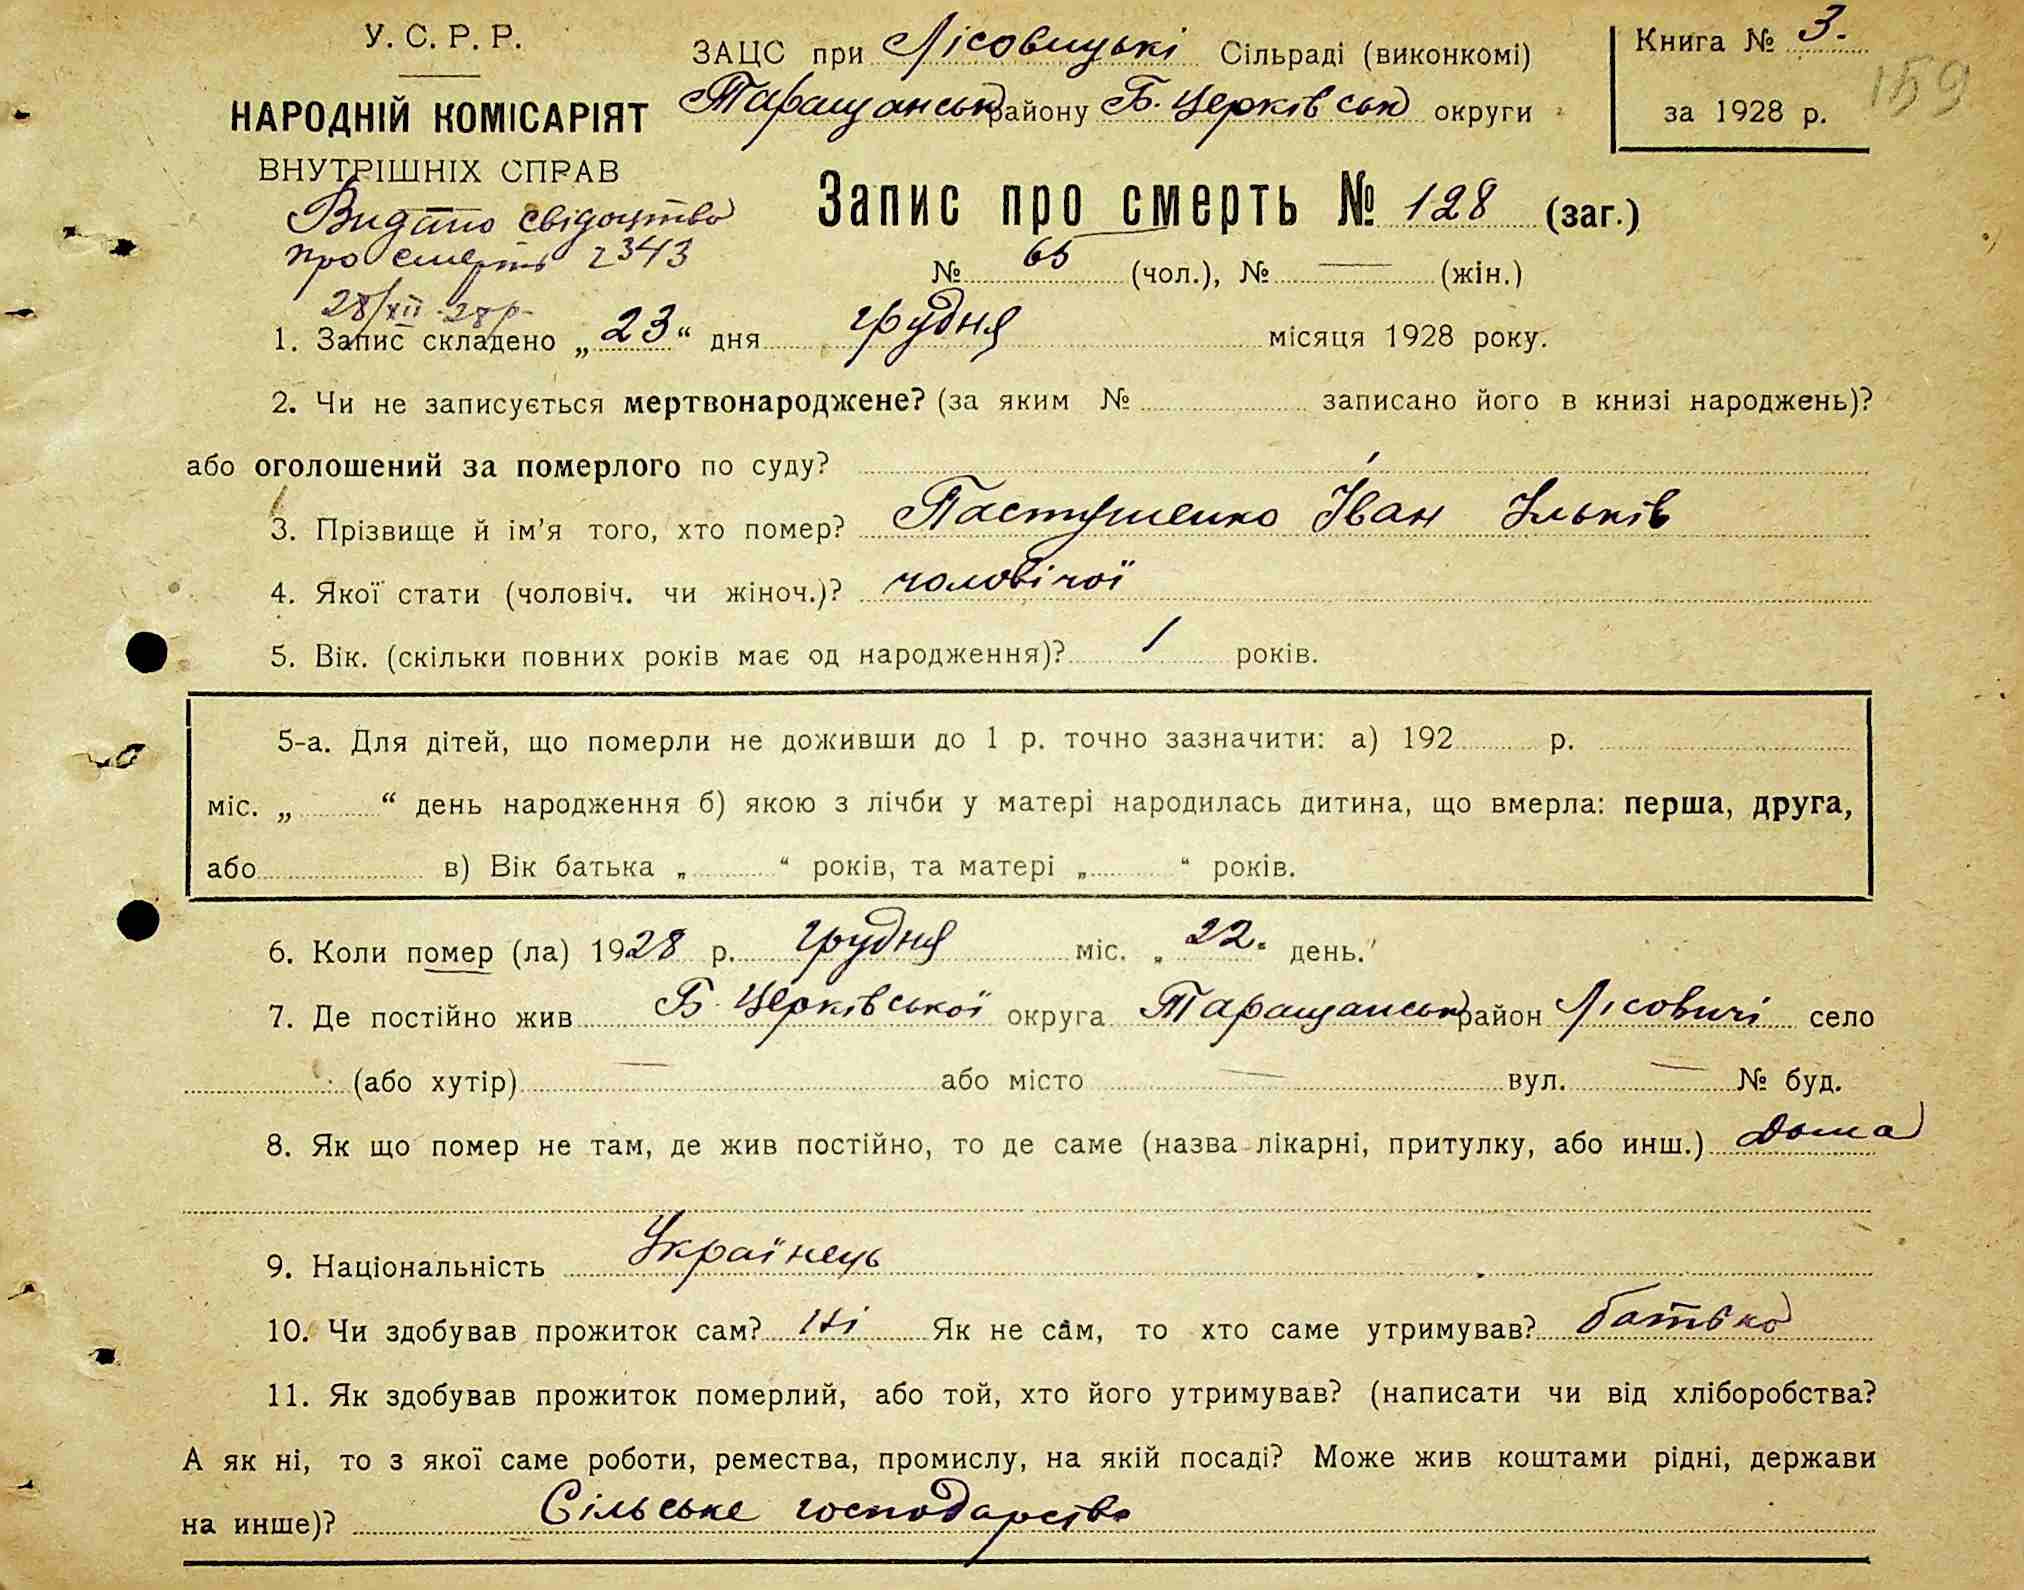 У. С. Р. Р.
НАРОДНІЙ КОМІСАРІЯТ
ВНУТРІШНІХ СПРАВ
ЗАЦС при Лісовицькі Сільраді (виконкомі)
Таращанськ району Б. Церківськ округи
Книга № 3.
за 1928 р.
159
Видано свідоцтво
про смерть 2343
28/XII-28р.
Запис про смерть № 128 (заг.)
№ 65 (чол.), № — (жін.)
1. Запис складено „23“ дня грудня місяця 1928 року.
2. Чи не записується мертвонароджене? (за яким № записано його в книзі народжень)?
або оголошений за померлого по суду?
3. Прізвище й ім’я того, хто помер? Пастушенко Іван Ільків
4. Якої стати (чоловіч. чи жіноч.)? чоловічої
5. Вік. (скільки повних років має од народження)? 1 років.
5-а. Для дітей, що померли не доживши до 1 р. точно зазначити: а) 192 р.
міс. „ “ день народження б) якою з лічби у матері народилась дитина, що вмерла: перша, друга,
або в) Вік батька „ “ років, та матері „ “ років.
6. Коли помер (ла) 1928 р. грудня міс. „ 22. день.
7. Де постійно жив Б. Церківської округа Таращанськ район Лісовичі село
(або хутір) — або місто — вул. — № буд.
8. Як що помер не там, де жив постійно, то де саме (назва лікарні, притулку, або инш.) дома
9. Національність Українець
10. Чи здобував прожиток сам? Ні Як не сам, то хто саме утримував? батько
11. Як здобував прожиток померлий, або той, хто його утримував? (написати чи від хліборобства?
А як ні, то з якої саме роботи, ремества, промислу, на якій посаді? Може жив коштами рідні, держави
на инше)? Сільське господарство